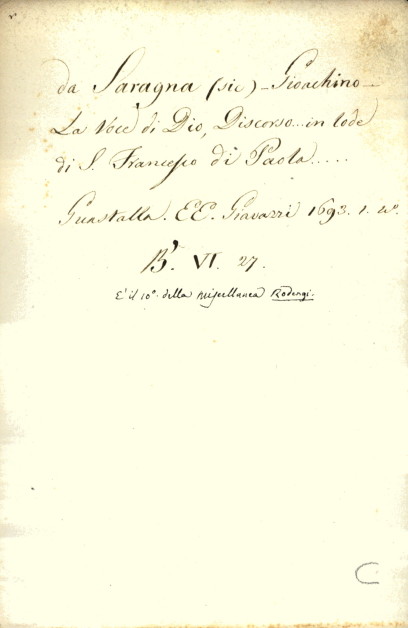 da Saragna (sic) - Gioachino -
La Voce di Dio, Discorso... in lode
di S. Francesco di Paola.....
Guastalla. EE. Giavazzi 1693. 1. 4°.
B'. VI. 27.
E' il 10°. della Miscellanea Rodengi.
C